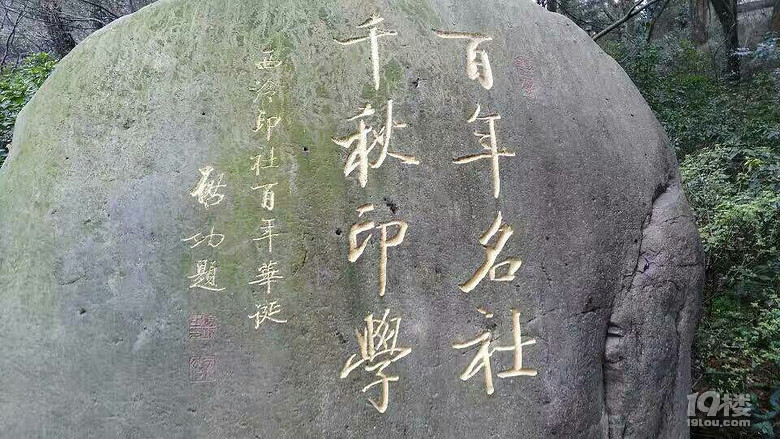 百年名社
千秋印學
西泠印社百年華誕
啓功題
19楼
19lou.com